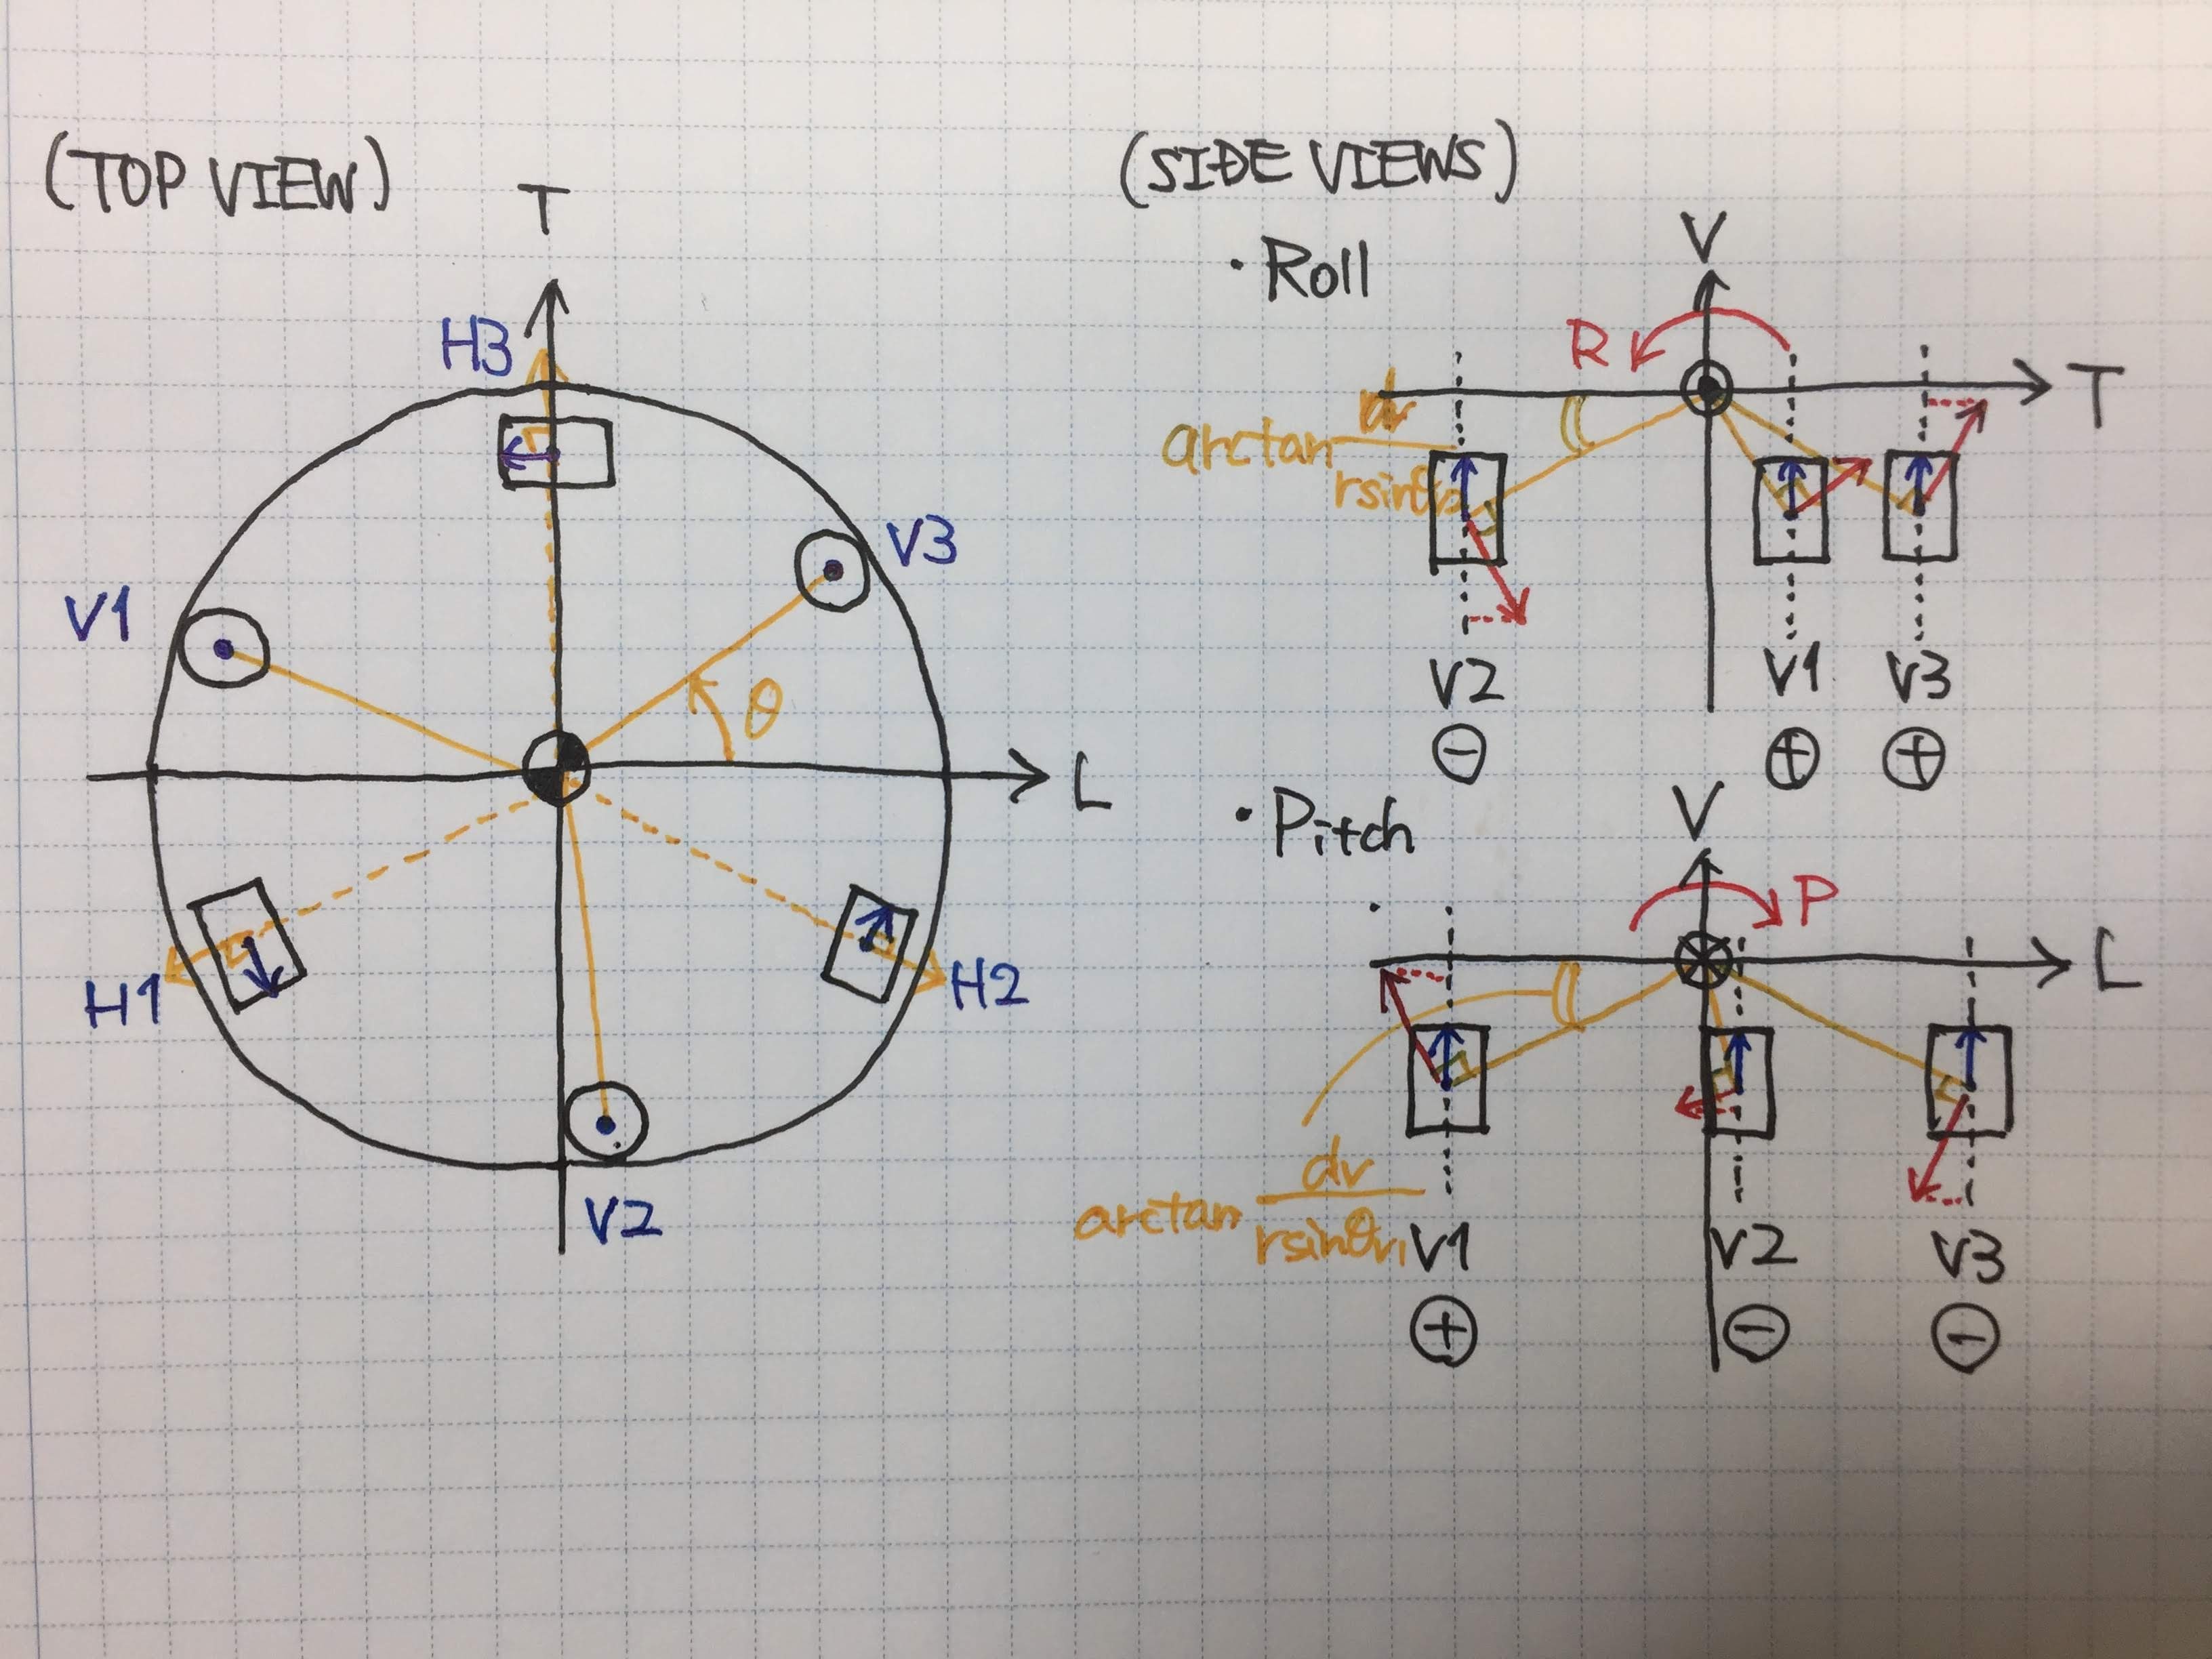 (TOP VIEW)
T
H3
V1
V3
θ
L
H1
H2
V2
(SIDE VIEWS)
· Roll
V
R
T
arctan
V2 V1 V3
⊖ ⊕ ⊕
· Pitch
V
P
L
arctan dv
rsinθv1
V1 V2 V3
⊕ ⊖ ⊖